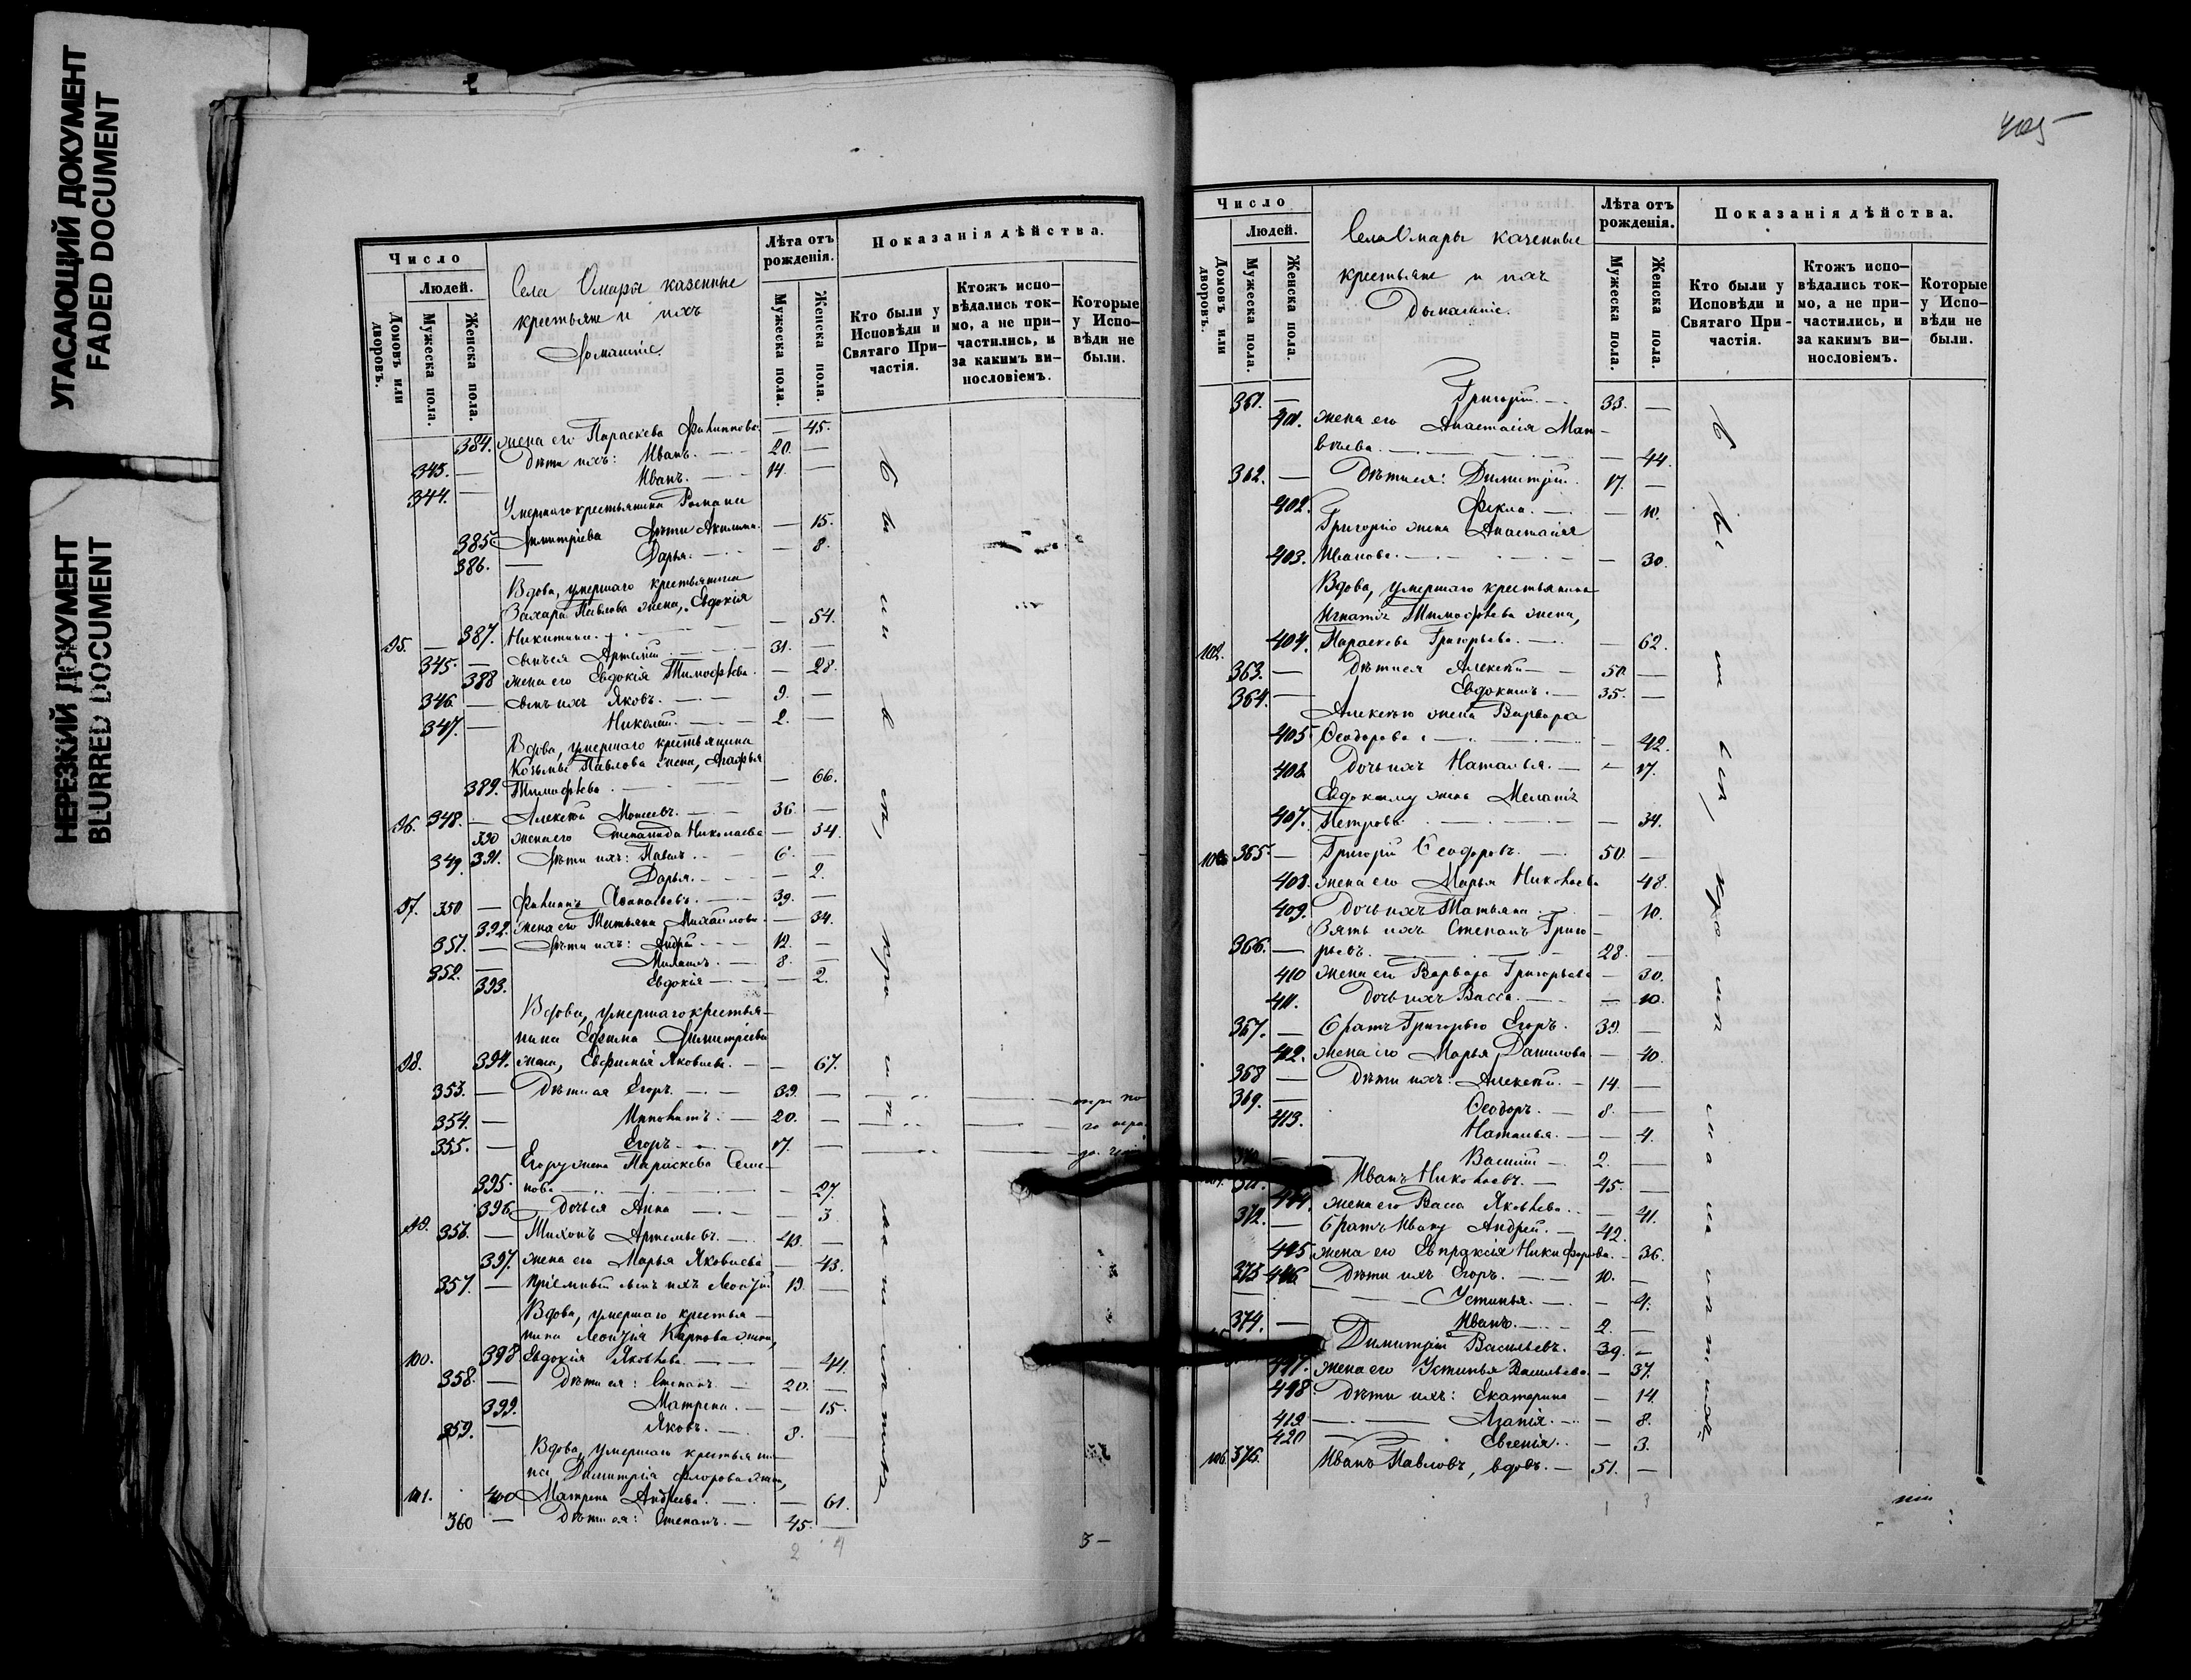 УГАСАЮЩИЙ ДОКУМЕНТ
FADED DOCUMENT
НЕРЕЗКИЙ ДОКУМЕНТ
BLURRED DOCUMENT
Число
Людей.
Домовъ или дворовъ.
Мужеска пола.
Женска пола.
Села Омары казенные
крестьяне и ихъ
домашніе.
Лѣта отъ рожденія.
Мужеска пола.
Женска пола.
Показанія дѣйства.
Кто были у Исповѣди и Святаго Причастія.
Ктожъ исповѣдались токмо, а не причастились, и за какимъ винословіемъ.
Которые у Исповѣди не были.
384. жена его Параскева Филиппова — 45.
343. — Дѣти ихъ: Иванъ. 20. —
344. — Иванъ. 14. —
Умершаго крестьянина Романа
385. Димитріева дѣти Акилина. — 15.
386. Дарья. — 8.
Вдова, умершаго крестьянина
Захара Павлова жена, Евдокія
95. — 387. Никитина. — 54.
345. — сынъ ея Артемій 31. —
388 жена его Евдокія Тимофѣева. — 28.
346. — сынъ ихъ Яковъ. 9. —
347. — Николай. 2. —
Вдова, умершаго крестьянина
Козьмы Павлова жена, Агафья
389. Тимофѣева — 66.
96. 348. — Алексѣй Моисеевъ. 36. —
390 жена его Степанида Николаева — 34.
349. 391. Дѣти ихъ: Павелъ. 6. —
Дарья. — 2.
97. 350. — Филиппъ Афанасьевъ. 39. —
392. жена его Татьяна Михайлова — 34.
351. — Дѣти ихъ: Андрей 12. —
352. — Михаилъ. 8. —
393. Евдокія — 2.
Вдова, умершаго крестья-
нина Ефима Димитріева
98. 394. жена, Евфимія Яковлева. — 67.
353. — Дѣти ея Егоръ. 39. —
354. — Ипполитъ. 20. —
355. — Егоръ 17. —
Егору жена Параскева Семе-
395. нова — 27.
396. дочь ея Анна — 3.
99. 356. — Тихонъ Артемьевъ. 43. —
397. жена его Марья Яковлева — 43.
357. — Пріемный сынъ ихъ Леонтій 19. —
Вдова, умершаго крестья-
нина Леонтія Карпова жена,
100. 398 Евдокія Яковлева. — 44.
358. — Дѣти ея: Степанъ. 20. —
399. Матрена. — 15.
359. — Яковъ. 8. —
Вдова, умершаго крестьяни-
на Димитрія Флорова жена,
101. 400 Матрена Андреева. — 61.
360 — Дѣти ея: Степанъ. 45. —
2 4
3 —
405
Число
Людей.
Домовъ или дворовъ.
Мужеска пола.
Женска пола.
Села Омары казенные
крестьяне и ихъ
домашніе.
Лѣта отъ рожденія.
Мужеска пола.
Женска пола.
Показанія дѣйства.
Кто были у Исповѣди и Святаго Причастія.
Ктожъ исповѣдались токмо, а не причастились, и за какимъ винословіемъ.
Которые у Исповѣди не были.
361. — Григорій. 33. —
401. жена его Анастасія Мат-
вѣева. — 44.
362. — Дѣти ея: Димитрій. 17. —
402. Фекла. — 10.
Григорію жена Анастасія
403. Иванова. — 30.
Вдова, умершаго крестьянина
Игнатія Тимофѣева жена,
102. 404. Параскева Григорьева. — 62.
363. — Дѣти ея Алексѣй — 50. —
364. — Евдокимъ. 35. —
Алексѣю жена Варвара
405. Ѳеодорова — 42.
406. Дочь ихъ Наталья. — 17.
Евдокиму жена Меланія
407. Петрова — 34.
103. 365. — Григорій Ѳеодоровъ. 50. —
408. жена его Марья Николаева 48.
409. Дочь ихъ Татьяна — 10.
Зять ихъ Степанъ Григо-
366. — рьевъ. 28. —
410 жена его Варвара Григорьева — 30.
411. Дочь ихъ Васса. — 10.
367. — Братъ Григорью Егоръ. 39. —
412. жена его Марья Данилова — 40.
368 — Дѣти ихъ: Алексѣй. 14. —
369. — Ѳеодоръ. 8. —
413. Наталья. — 4.
Василій 2. —
Иванъ Николаевъ. 45. —
414. жена его Васса Яковлева. — 41.
372. — Братъ Ивану Андрей. 42.
415 жена его Евпраксія Никифорова. 36.
373 416 Дѣти ихъ Егоръ. 10. —
Устинья. — 4.
374. — Иванъ. 2. —
Димитрій Васильевъ. 39. —
417. жена его Устинья Васильева — 37.
418 Дѣти ихъ: Екатерина — 14.
419 Агапія. — 8.
420 Евгенія. — 3.
106. 376. Иванъ Павловъ, вдовъ. 51. —
1 3